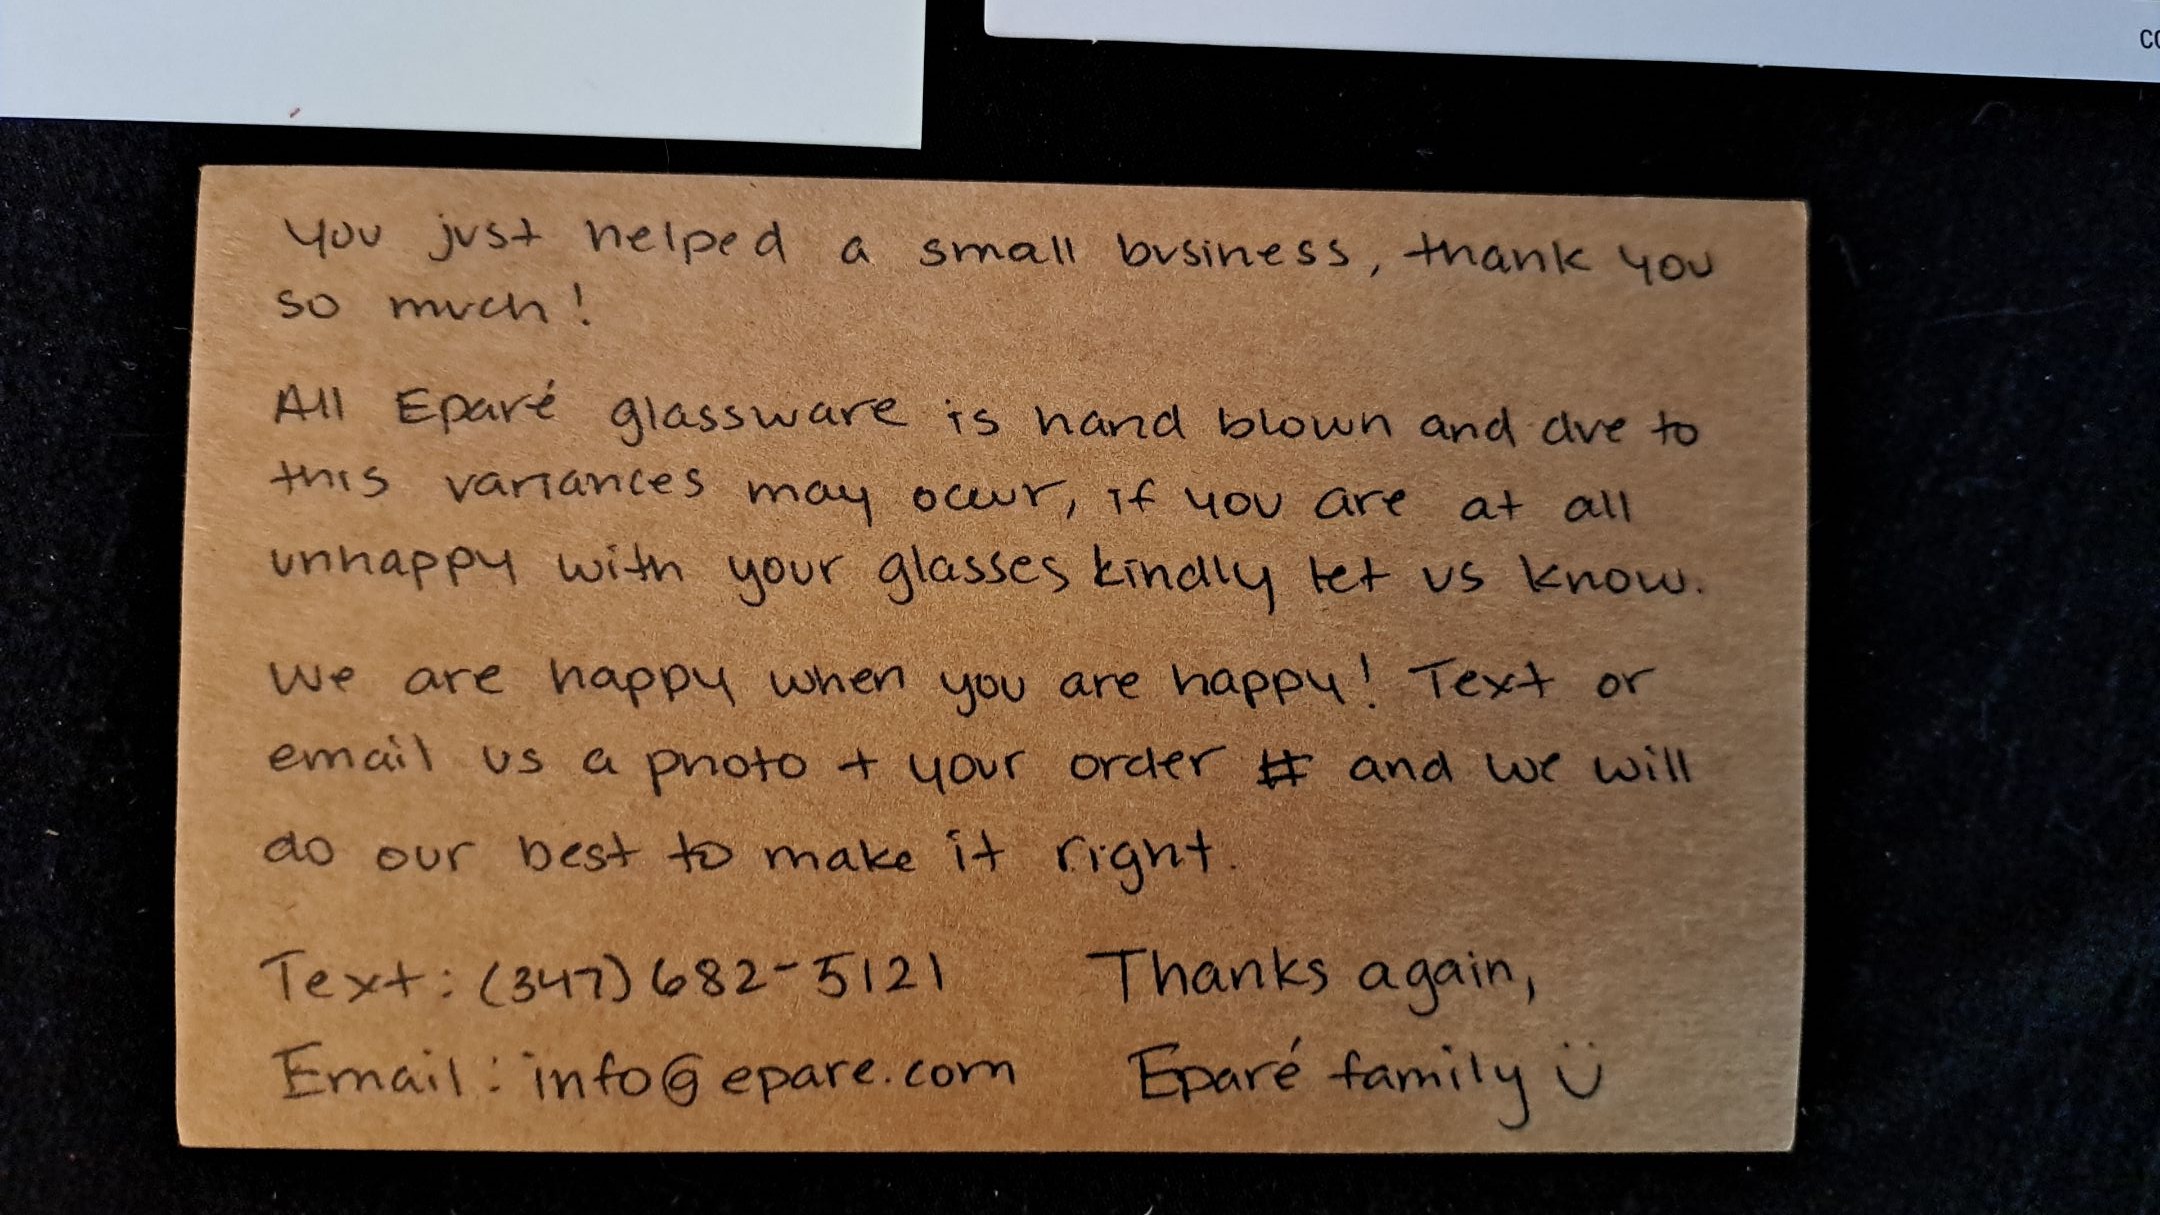 CO
You just helped a small business, thank you
so much!
All Eparé glassware is hand blown and due to
this variances may occur, if you are at all
unhappy with your glasses kindly let us know.
We are happy when you are happy! Text or
email us a photo + your order # and we will
do our best to make it right.
Text: (347) 682-5121
Email: info@epare.com
Thanks again,
Eparé family ü